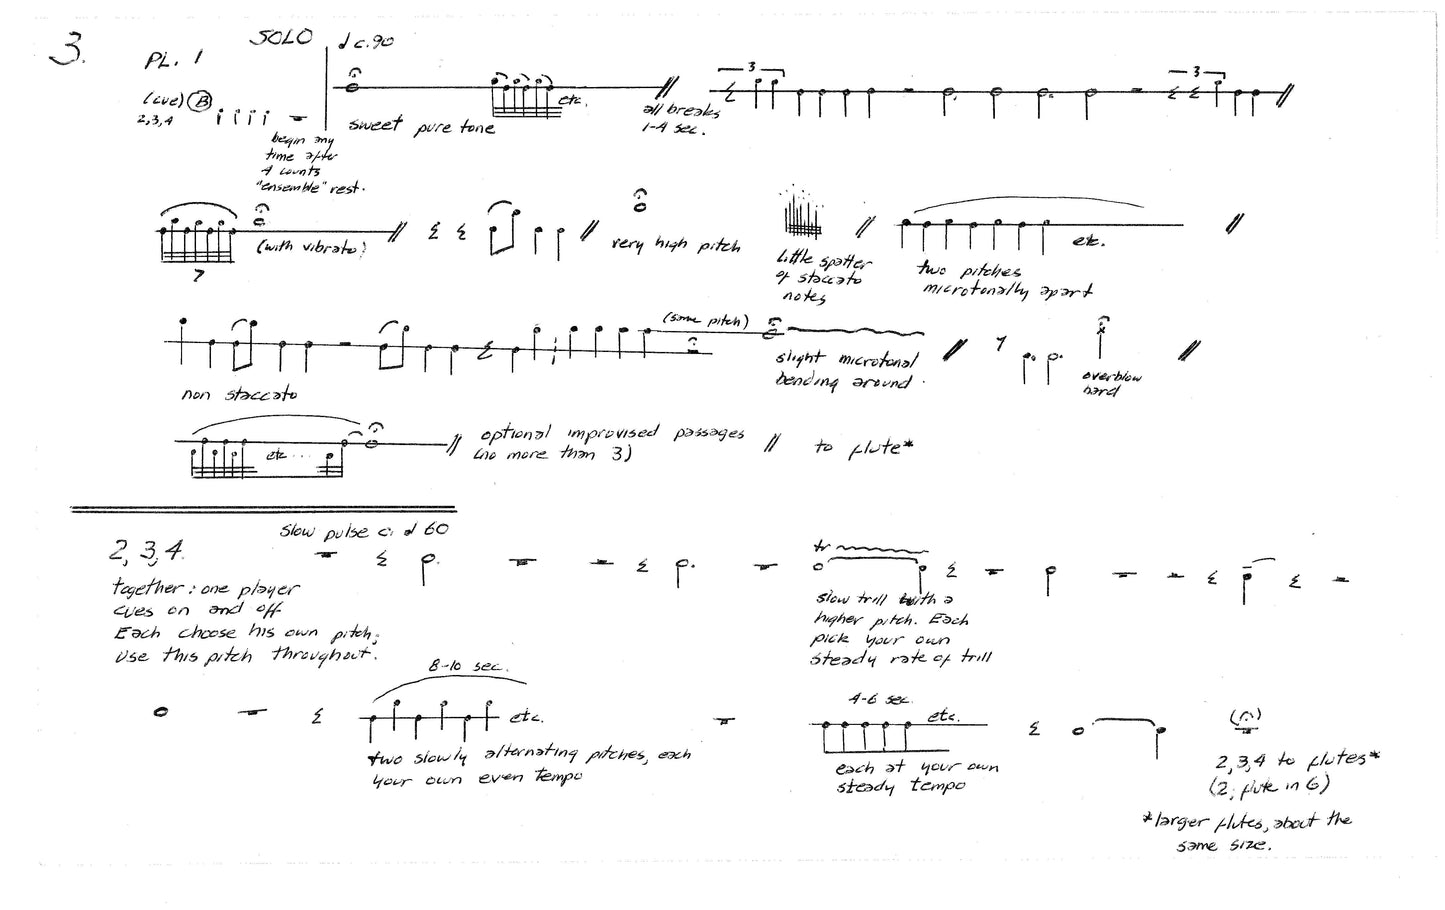 3.
PL. 1
SOLO
♩ c. 90
(cue) B
2,3,4
begin any
time after
4 counts
"ensemble" rest.
sweet pure tone
etc.
all breaks
1-4 sec.
3
3
7
(with vibrato)
very high pitch
little spatter
of staccato
notes
etc.
two pitches
microtonally apart
non staccato
(same pitch)
slight microtonal
bending around.
overblow
hard
etc...
optional improvised passages
(no more than 3)
to flute*
slow pulse c. ♩ 60
2, 3, 4.
together: one player
cues on and off
Each choose his own pitch;
use this pitch throughout.
tr
slow trill with a
higher pitch. Each
pick your own
steady rate of trill
8-10 sec.
etc.
two slowly alternating pitches, each
your own even tempo
4-6 sec.
etc.
each at your own
steady tempo
2,3,4 to flutes*
(2; flute in G)
*larger flutes, about the
same size.